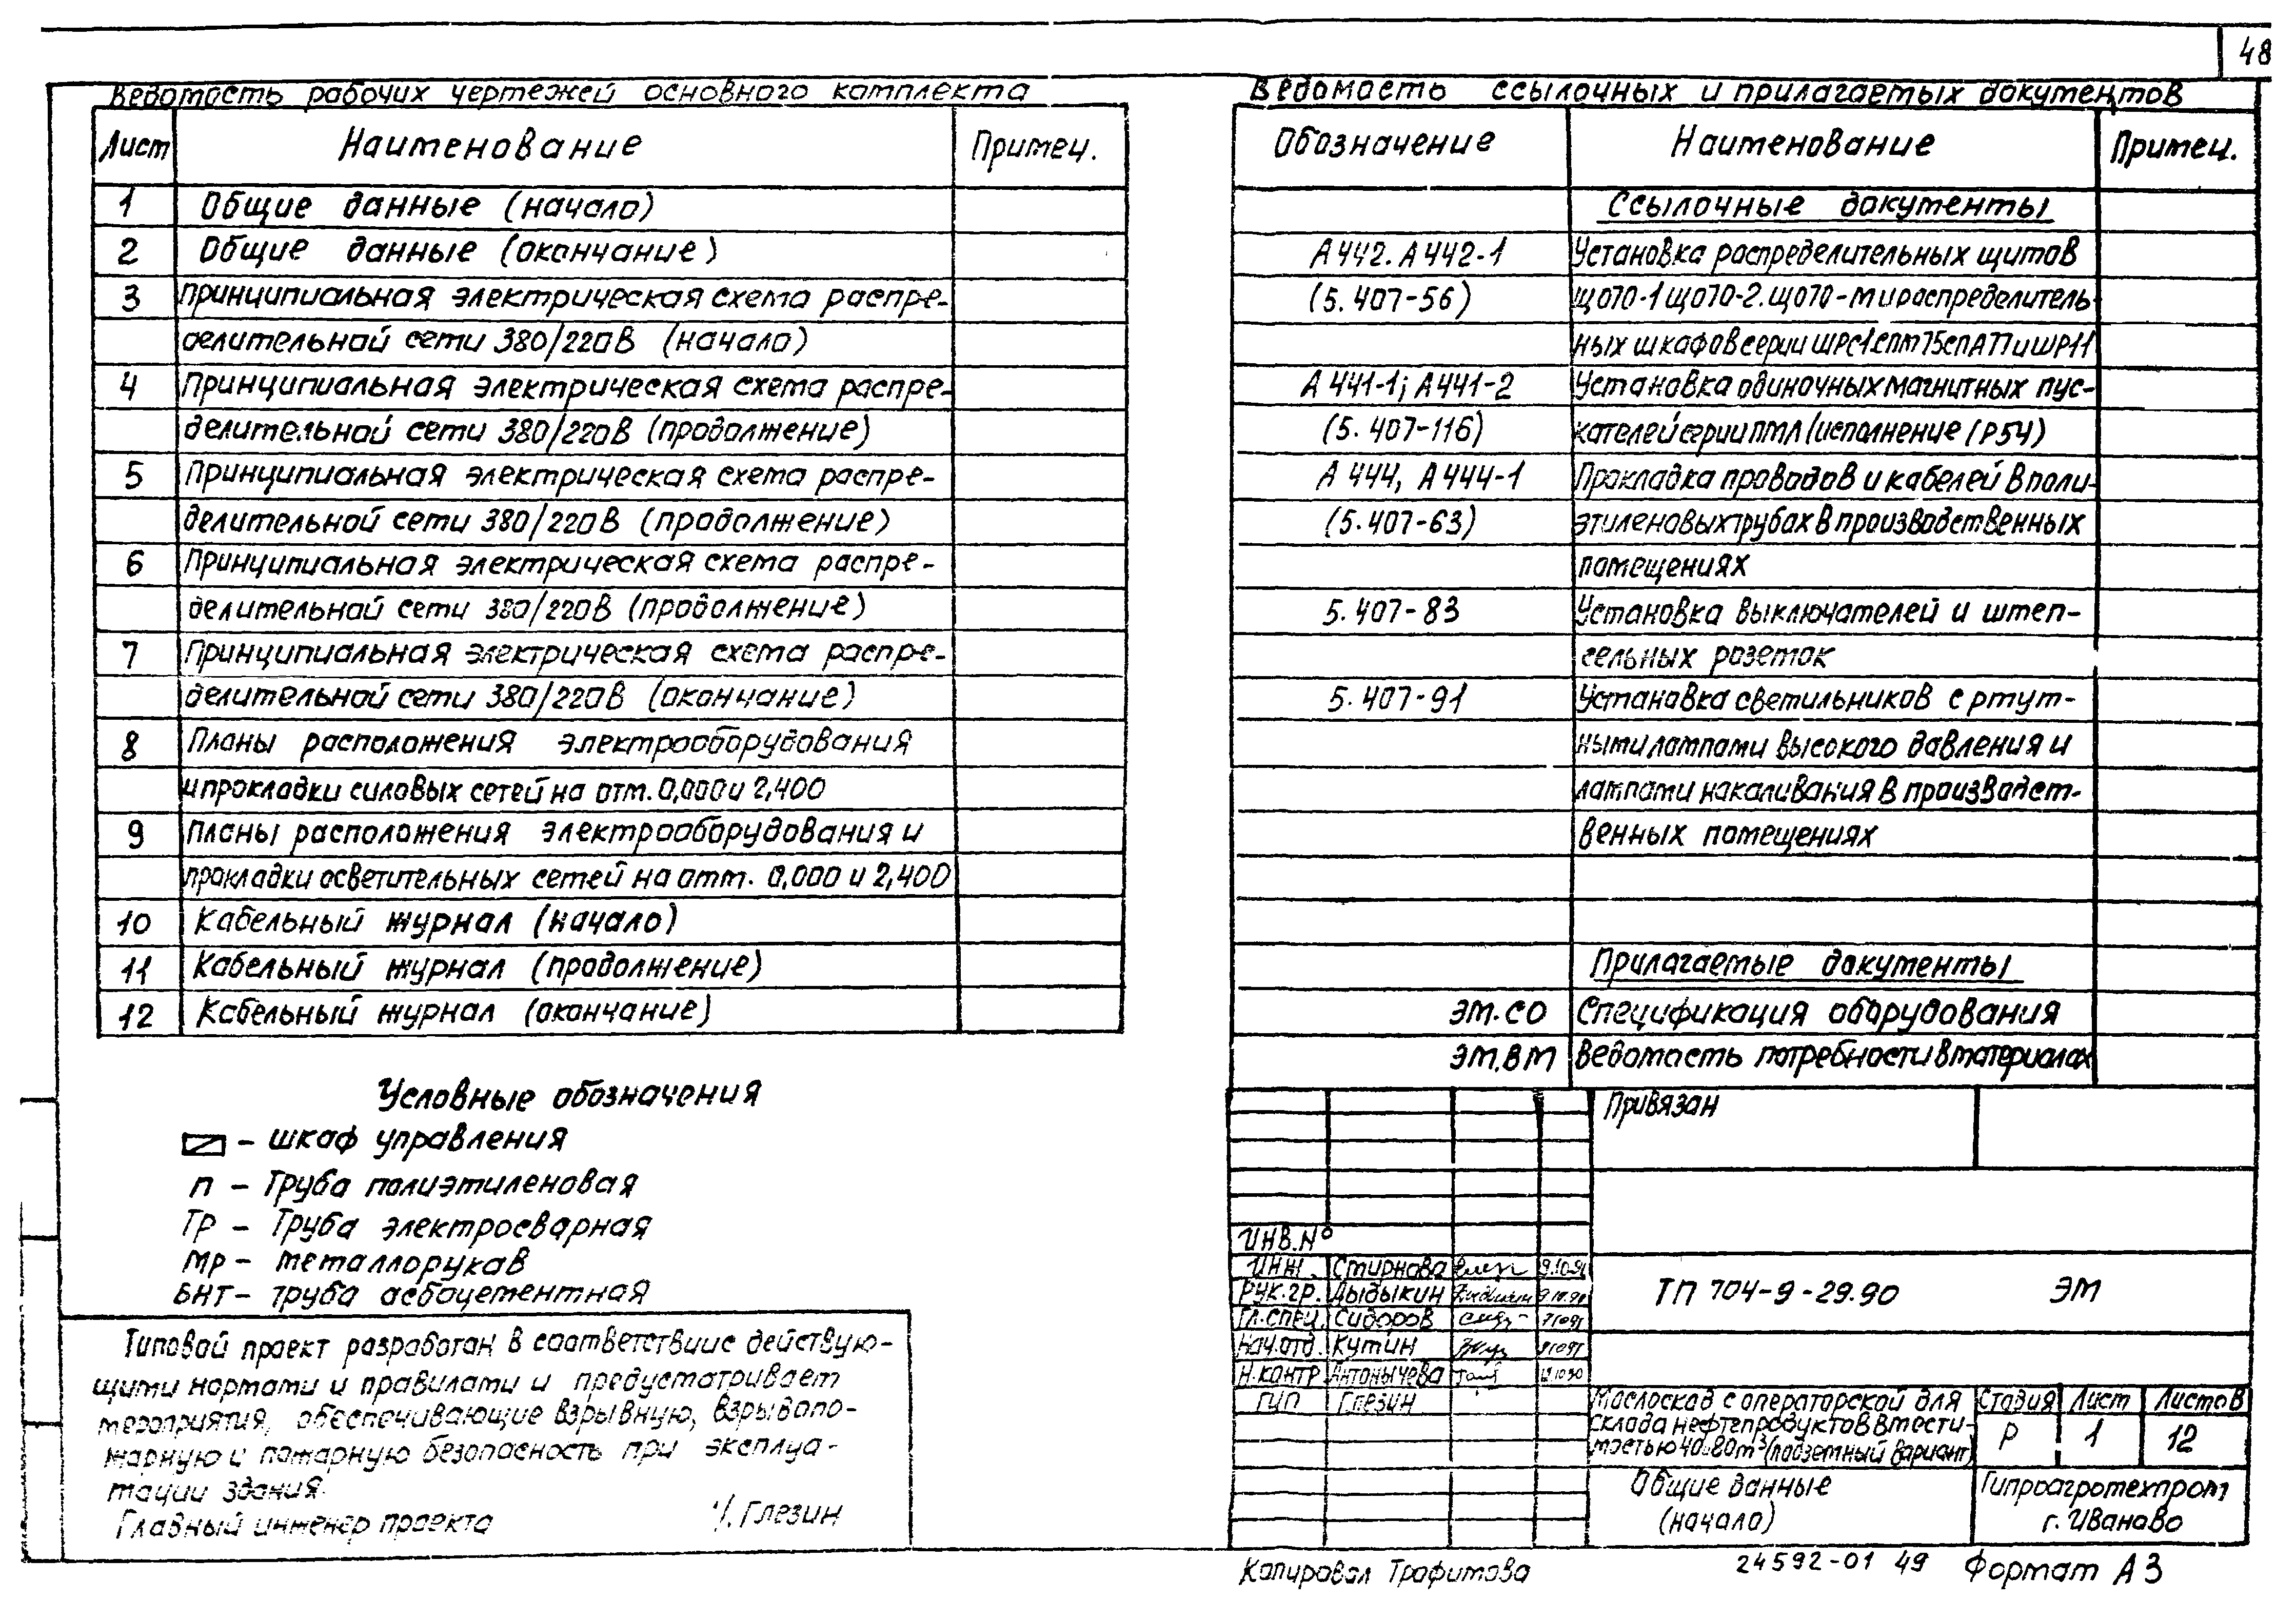 48
Ведомость рабочих чертежей основного комплекта
Лист Наименование Примеч.
1 Общие данные (начало)
2 Общие данные (окончание)
3 Принципиальная электрическая схема распре-
делительной сети 380/220В (начало)
4 Принципиальная электрическая схема распре-
делительной сети 380/220В (продолжение)
5 Принципиальная электрическая схема распре-
делительной сети 380/220В (продолжение)
6 Принципиальная электрическая схема распре-
делительной сети 380/220В (продолжение)
7 Принципиальная электрическая схема распре-
делительной сети 380/220В (окончание)
8 Планы расположения электрооборудования
и прокладки силовых сетей на отм. 0,000 и 2,400
9 Планы расположения электрооборудования и
прокладки осветительных сетей на отм. 0,000 и 2,400
10 Кабельный журнал (начало)
11 Кабельный журнал (продолжение)
12 Кабельный журнал (окончание)
Условные обозначения
– шкаф управления
П – Труба полиэтиленовая
ТР – Труба электросварная
МР – металлорукав
БНТ – труба асбоцементная
Типовой проект разработан в соответствии с действую-
щими нормами и правилами и предусматривает
мероприятия, обеспечивающие взрывную, взрывопо-
жарную и пожарную безопасность при эксплуа-
тации здания.
Главный инженер проекта Глезин
Ведомость ссылочных и прилагаемых документов
Обозначение Наименование Примеч.
Ссылочные документы
А442. А442-1 Установка распределительных щитов
(5.407-56) ЩО70-1 ЩО70-2. ЩО70-М и распределитель-
ных шкафов серии ШРС1 СПМ75 СПА77 и ШР11
А441-1; А441-2 Установка одиночных магнитных пус-
(5.407-116) кателей серии ПМЛ (исполнение IР54)
А444, А444-1 Прокладка проводов и кабелей в поли-
(5.407-63) этиленовых трубах в производственных
помещениях
5.407-83 Установка выключателей и штеп-
сельных розеток
5.407-91 Установка светильников с ртут-
ными лампами высокого давления и
лампами накаливания в производст-
венных помещениях
Прилагаемые документы
ЭМ.СО Спецификация оборудования
ЭМ.ВМ Ведомость потребности в материалах
Привязан
ИНВ.№
Инж. Смирнова
Рук.гр. Дыдыкин
Гл.спец. Сидоров
Нач.отд. Кутин
Н.контр Антонычева
ГИП Глезин
ТП 704-9-29.90 ЭМ
Маслосклад с операторской для
склада нефтепродуктов вмести-
мостью 40..80м³ (подземный вариант)
Стадия Лист Листов
Р 1 12
Общие данные
(начало)
Гипроагротехпром
г. Иваново
Копировал Трофимова 24592-01 49 Формат А3